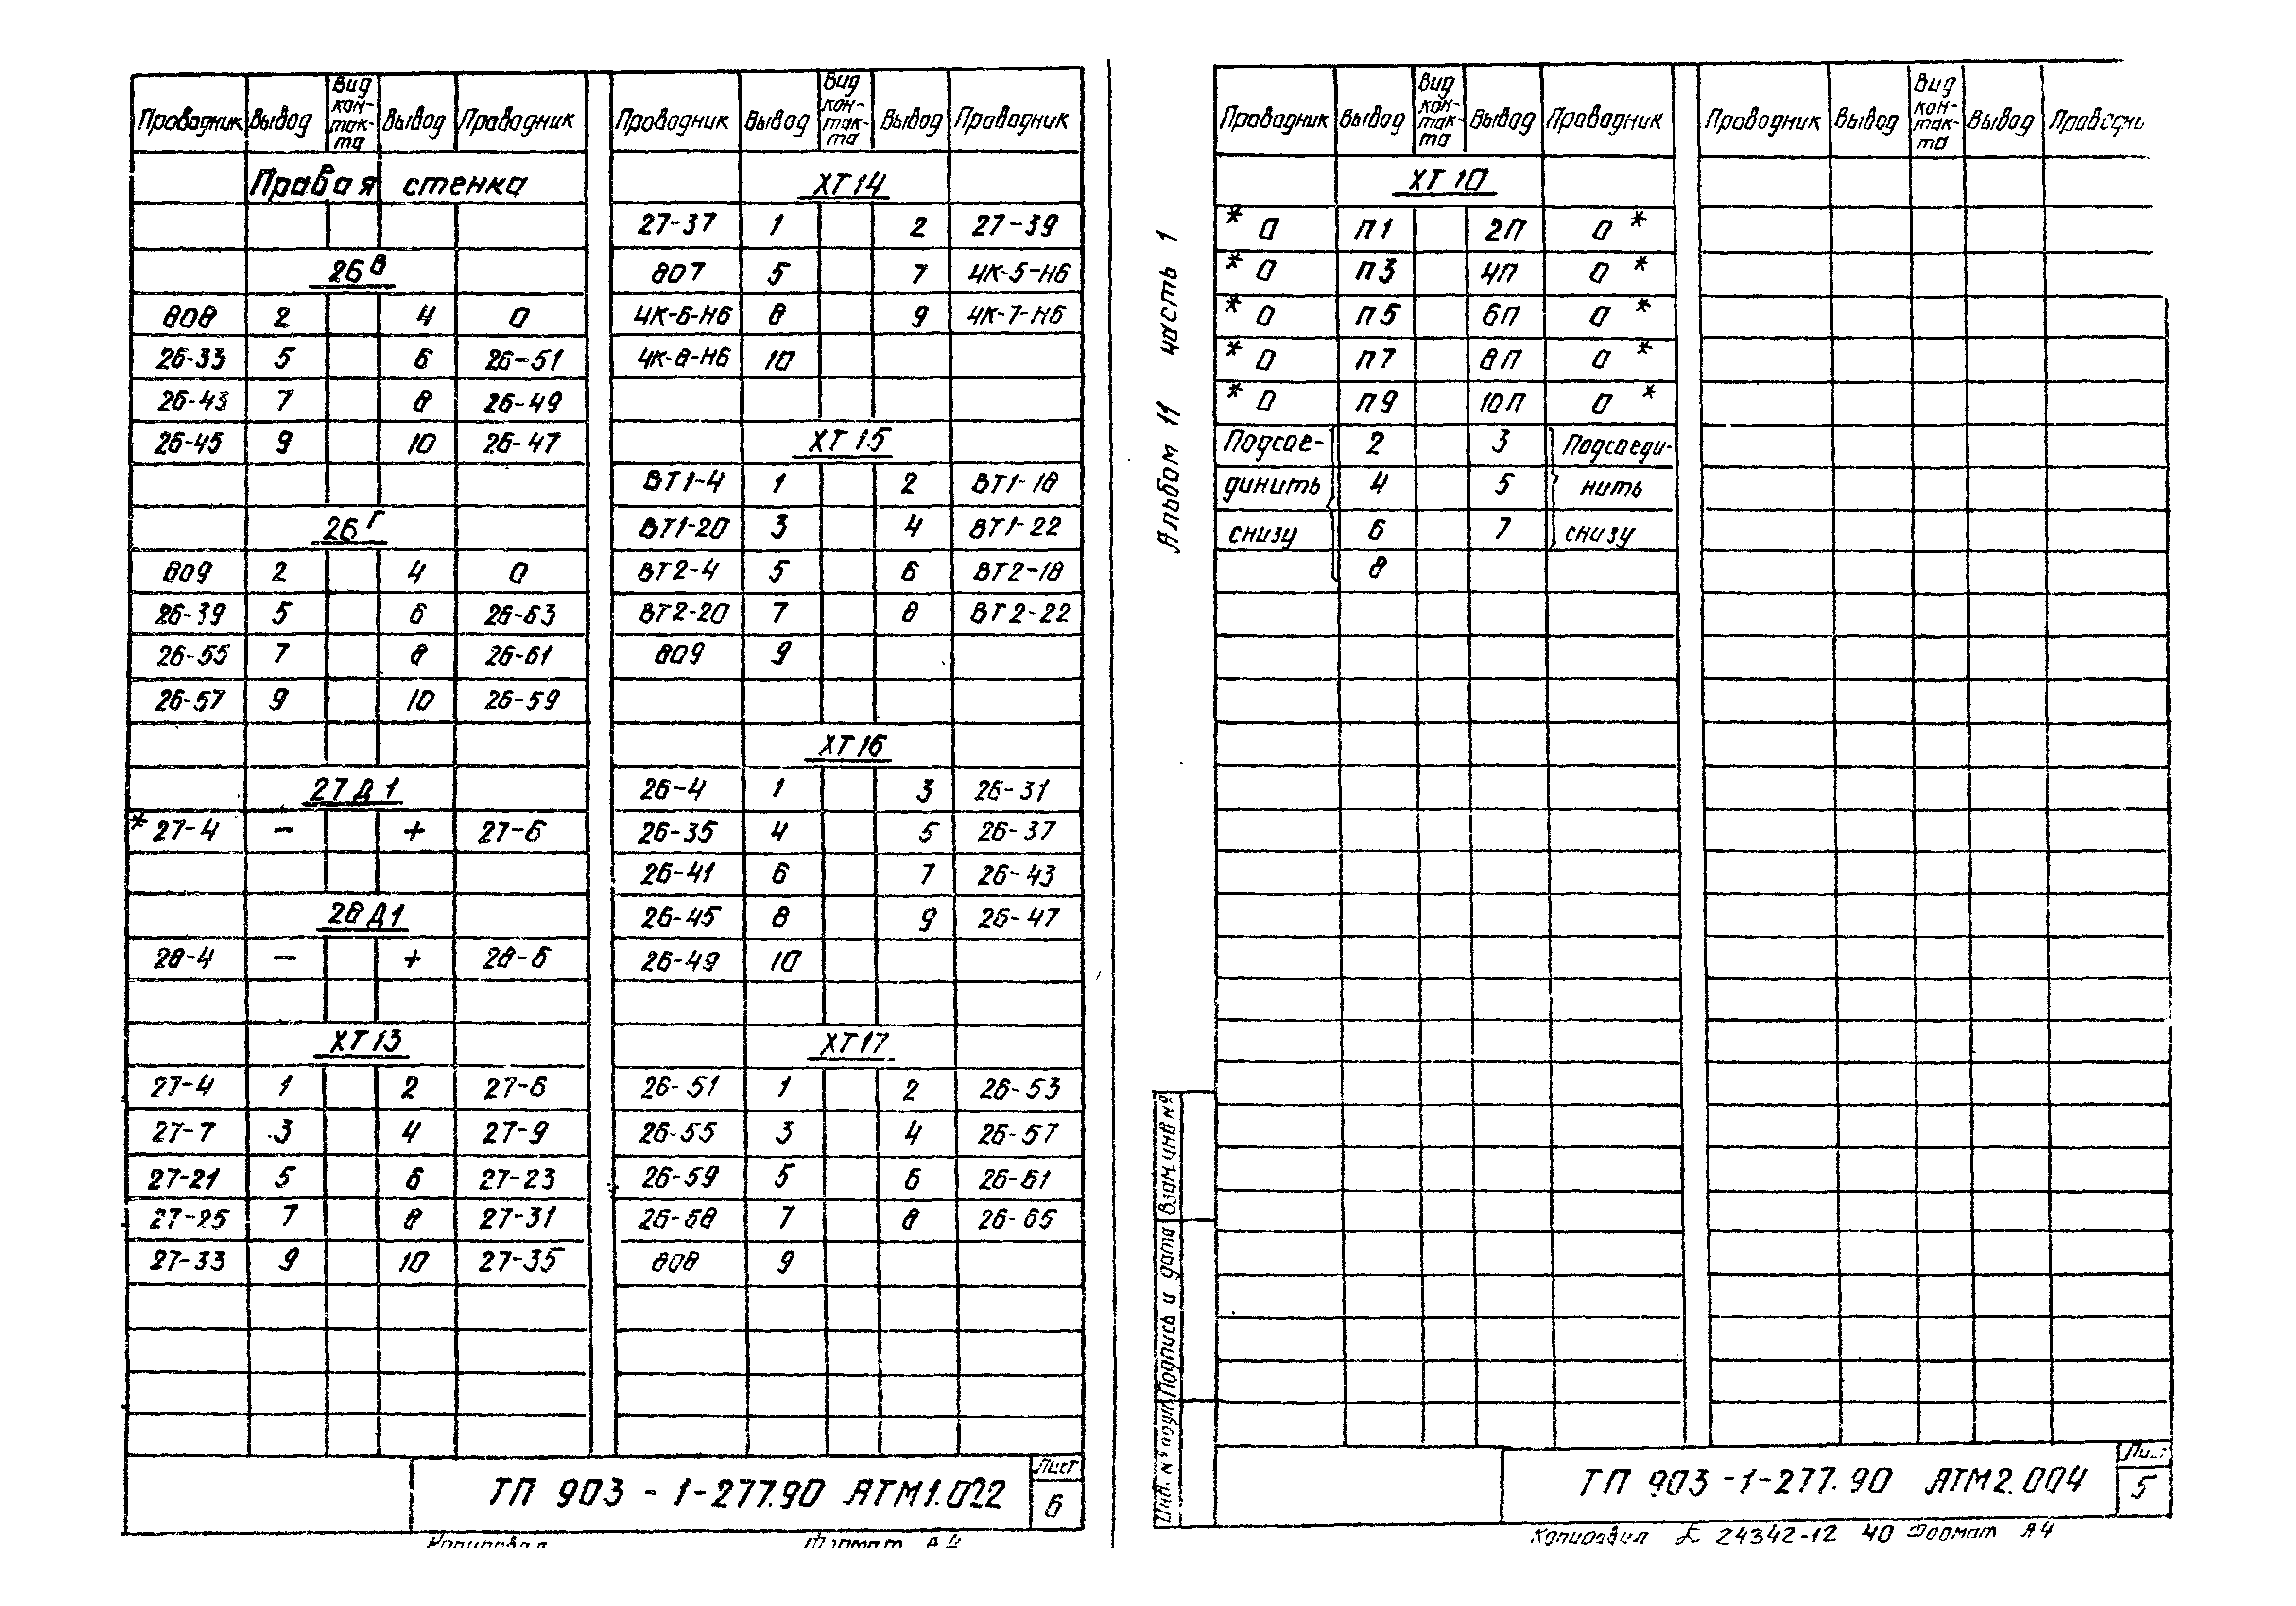 Проводник Вывод Вид кон-так-та Вывод Проводник
Правая стенка
26В
808 2 4 0
26-33 5 6 26-51
26-43 7 8 26-49
26-45 9 10 26-47
26Г
809 2 4 0
26-39 5 6 26-63
26-55 7 8 26-61
26-57 9 10 26-59
27Д1
* 27-4 - + 27-6
28Д1
28-4 - + 28-6
ХТ13
27-4 1 2 27-6
27-7 3 4 27-9
27-21 5 6 27-23
27-25 7 8 27-31
27-33 9 10 27-35
Проводник Вывод Вид кон-так-та Вывод Проводник
ХТ14
27-37 1 2 27-39
807 5 7 4К-5-Н6
4К-6-Н6 8 9 4К-7-Н6
4К-8-Н6 10
ХТ15
ВТ1-4 1 2 ВТ1-18
ВТ1-20 3 4 ВТ1-22
ВТ2-4 5 6 ВТ2-18
ВТ2-20 7 8 ВТ2-22
809 9
ХТ16
26-4 1 3 26-31
26-35 4 5 26-37
26-41 6 7 26-43
26-45 8 9 26-47
26-49 10
ХТ17
26-51 1 2 26-53
26-55 3 4 26-57
26-59 5 6 26-61
26-68 7 8 26-65
808 9
ТП 903-1-277.90 АТМ1.022
Лист
6
Копировал Формат А4
Альбом 11 часть 1
Проводник Вывод Вид кон-так-та Вывод Проводник
ХТ10
* 0 П1 2П 0 *
* 0 П3 4П 0 *
* 0 П5 6П 0 *
* 0 П7 8П 0 *
* 0 П9 10П 0 *
Подсое- 2 3 Подсоеди-
динить 4 5 нить
снизу 6 7 снизу
8
Проводник Вывод Вид кон-так-та Вывод Проводни
Взам инв №
Подпись и дата
Инв. № подп
ТП 903-1-277.90 АТМ2.004
5
Копировал 24342-12 40 Формат А4